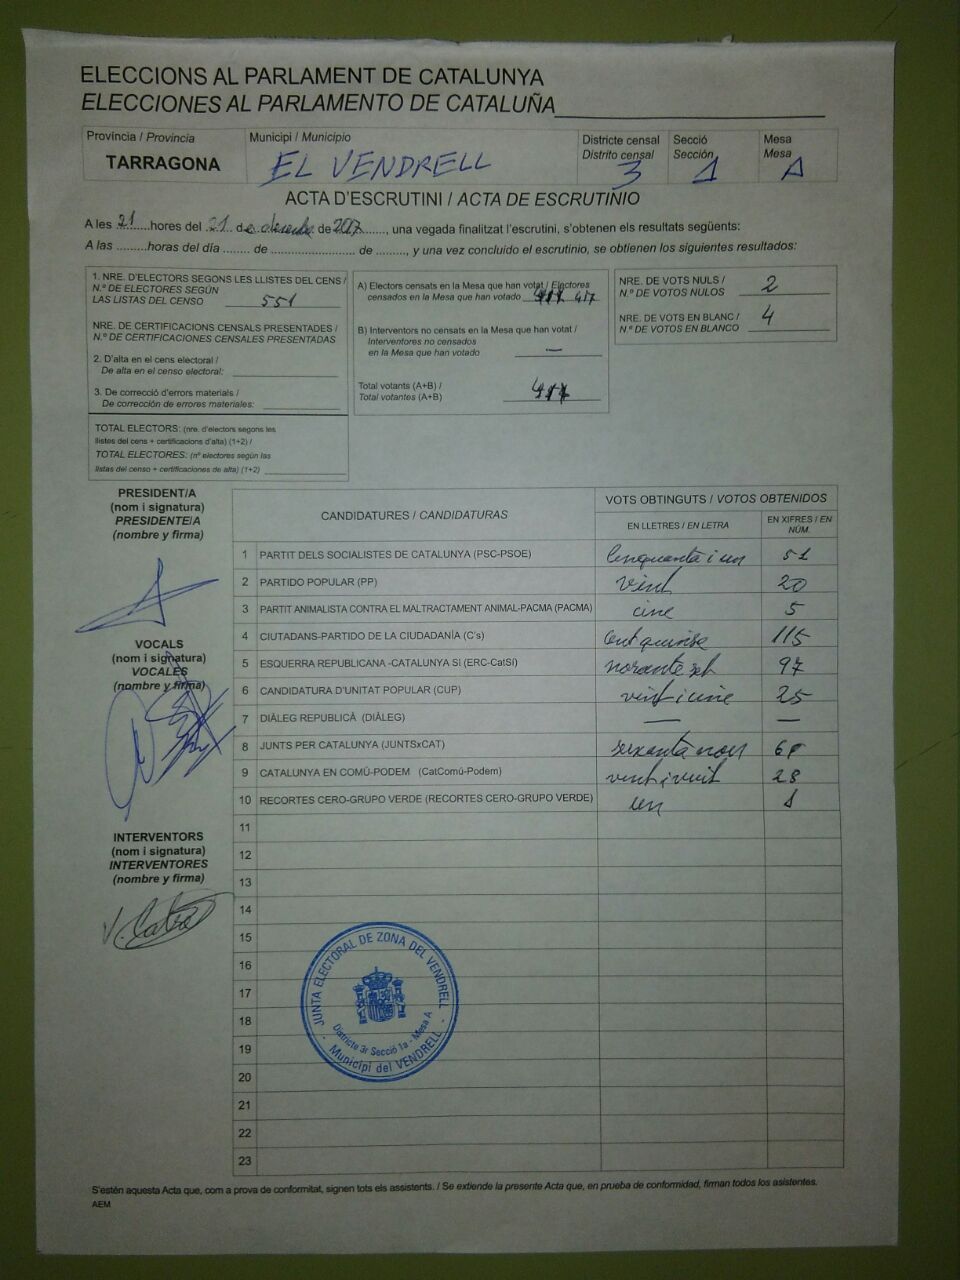 ELECCIONS AL PARLAMENT DE CATALUNYA
ELECCIONES AL PARLAMENTO DE CATALUÑA
Província / Provincia Municipi / Municipio Districte censal Secció Mesa
Distrito censal Sección Mesa
TARRAGONA EL VENDRELL 3 1 A
ACTA D'ESCRUTINI / ACTA DE ESCRUTINIO
A les 21 hores del 21 de de 2017, una vegada finalitzat l'escrutini, s'obtenen els resultats següents:
A las .........horas del día ........ de ......................... de ........., y una vez concluido el escrutinio, se obtienen los siguientes resultados:
1. NRE. D'ELECTORS SEGONS LES LLISTES DEL CENS /
N.º DE ELECTORES SEGÚN
LAS LISTAS DEL CENSO 551
NRE. DE CERTIFICACIONS CENSALS PRESENTADES /
N.º DE CERTIFICACIONES CENSALES PRESENTADAS
2. D'alta en el cens electoral /
De alta en el censo electoral:
3. De correcció d'errors materials /
De corrección de errores materiales:
TOTAL ELECTORS: (nre. d'electors segons les
llistes del cens + certificacions d'alta) (1+2) /
TOTAL ELECTORES: (nº electores según las
listas del censo + certificaciones de alta) (1+2)
A) Electors censats en la Mesa que han votat / Electores
censados en la Mesa que han votado 417
B) Interventors no censats en la Mesa que han votat /
Interventores no censados
en la Mesa que han votado —
Total votants (A+B) /
Total votantes (A+B)
NRE. DE VOTS NULS /
N.º DE VOTOS NULOS 2
NRE. DE VOTS EN BLANC /
N.º DE VOTOS EN BLANCO 4
PRESIDENT/A
(nom i signatura)
PRESIDENTE/A
(nombre y firma)
VOCALS
(nom i signatura)
VOCALES
(nombre y firma)
INTERVENTORS
(nom i signatura)
INTERVENTORES
(nombre y firma)
CANDIDATURES / CANDIDATURAS VOTS OBTINGUTS / VOTOS OBTENIDOS
EN LLETRES / EN LETRA EN XIFRES / EN NÚM.
1 PARTIT DELS SOCIALISTES DE CATALUNYA (PSC-PSOE) Cinquanta i un 51
2 PARTIDO POPULAR (PP) vint 20
3 PARTIT ANIMALISTA CONTRA EL MALTRACTAMENT ANIMAL-PACMA (PACMA) cinc 5
4 CIUTADANS-PARTIDO DE LA CIUDADANÍA (C's) Cent quinse 115
5 ESQUERRA REPUBLICANA -CATALUNYA SÍ (ERC-CatSí) norante set 97
6 CANDIDATURA D'UNITAT POPULAR (CUP) vint i cinc 25
7 DIÀLEG REPUBLICÀ (DIÀLEG) — —
8 JUNTS PER CATALUNYA (JUNTSxCAT) seixanta nou 69
9 CATALUNYA EN COMÚ-PODEM (CatComú-Podem) vint i vuit 28
10 RECORTES CERO-GRUPO VERDE (RECORTES CERO-GRUPO VERDE) un 1
11
12
13
14
15
16
17
18
19
20
21
22
23
JUNTA ELECTORAL DE ZONA DEL VENDRELL
Districte 3r Secció 1a - Mesa A
Municipi del VENDRELL
S'estén aquesta Acta que, com a prova de conformitat, signen tots els assistents. / Se extiende la presente Acta que, en prueba de conformidad, firman todos los asistentes.
AEM